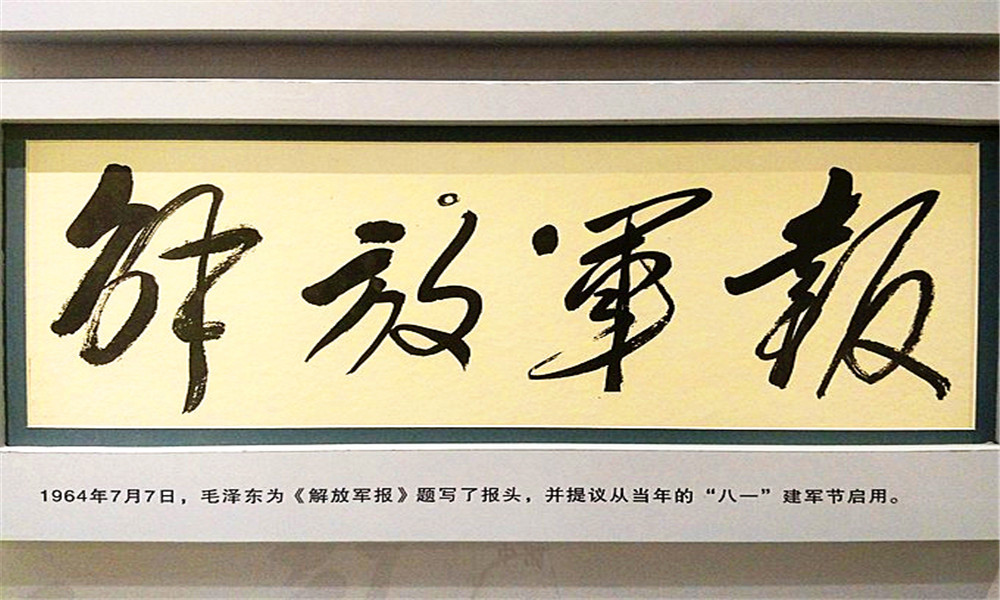 解放軍報
1964年7月7日，毛泽东为《解放军报》题写了报头，并提议从当年的“八一”建军节启用。